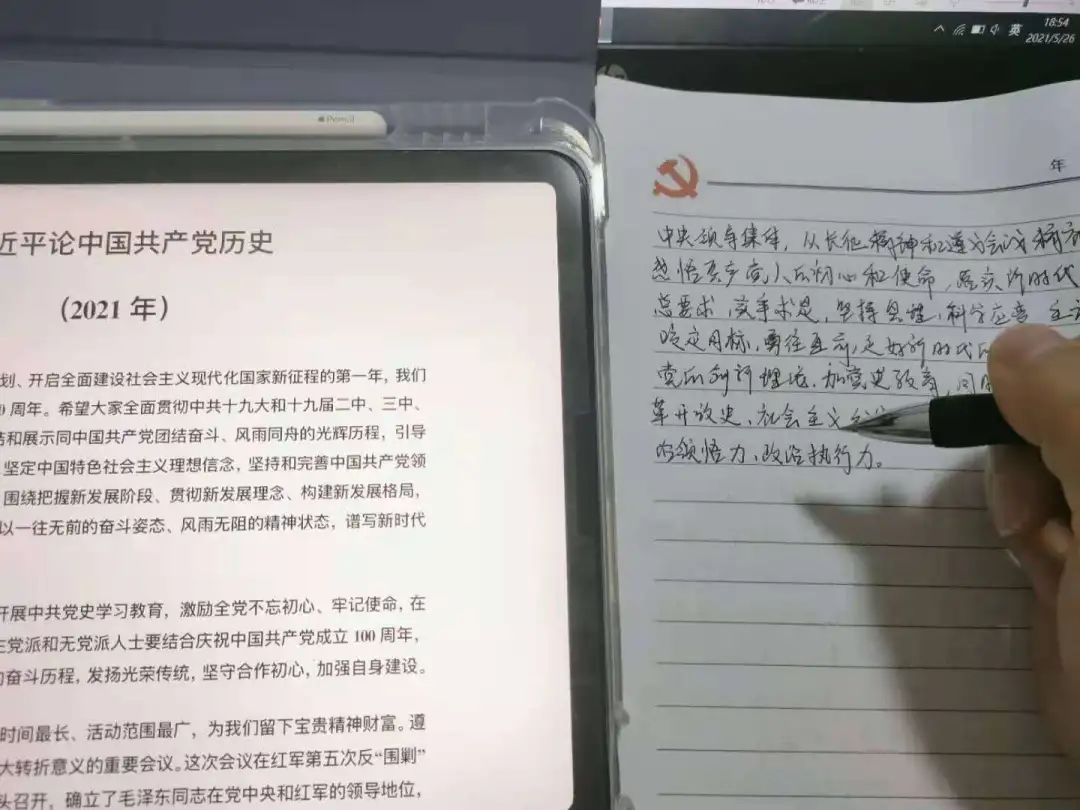 英
18:54
2021/5/26
Pencil
近平论中国共产党历史
(2021 年)
划、开启全面建设社会主义现代化国家新征程的第一年，我们
周年。希望大家全面贯彻中共十九大和十九届二中、三中、
结和展示同中国共产党团结奋斗、风雨同舟的光辉历程，引导
坚定中国特色社会主义理想信念，坚持和完善中国共产党领
围绕把握新发展阶段、贯彻新发展理念、构建新发展格局，
以一往无前的奋斗姿态、风雨无阻的精神状态，谱写新时代
开展中共党史学习教育，激励全党不忘初心、牢记使命，在
主党派和无党派人士要结合庆祝中国共产党成立 100 周年，
的奋斗历程，发扬光荣传统，坚守合作初心，加强自身建设。
时间最长、活动范围最广，为我们留下宝贵精神财富。遵
大转折意义的重要会议。这次会议在红军第五次反“围剿”
头召开，确立了毛泽东同志在党中央和红军的领导地位，
年
中央领导集体，从长征精神和遵义会议精神
感悟共产党人的初心和使命，落实新时代
总要求，实事求是，坚持真理，科学应变，主
咬定目标，勇往直前，走好新时代的
党的创新理论，加党史教育，同
革开放史、社会主义
的领悟力、政治执行力。